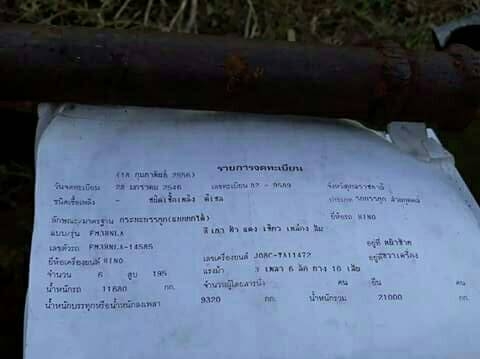 รายการจดทะเบียน
(18 กุมภาพันธ์ 2556)
วันจดทะเบียน 28 มกราคม 2546 เลขทะเบียน 82 - 9589 จังหวัด
ชนิดเชื้อเพลิง - ดีเซล ประเภท รถบรรทุก ส่วนบุคคล
ลักษณะ/มาตรฐาน กระบะบรรทุก(ยกเทได้) สี เทา ฟ้า แดง เขียว เหลือง ส้ม ยี่ห้อรถ HINO
แบบ/รุ่น
เลขตัวรถ อยู่ที่
ยี่ห้อเครื่องยนต์ HINO เลขเครื่องยนต์ อยู่ที่ขวาเครื่อง
จำนวน 6 สูบ 195 แรงม้า 3 เพลา 6 ล้อ ยาง 10 เส้น
น้ำหนักรถ 11680 กก. จำนวนผู้โดยสารนั่ง คน ยืน คน
น้ำหนักบรรทุกหรือน้ำหนักลงเพลา 9320 กก. น้ำหนักรวม 21000 กก.